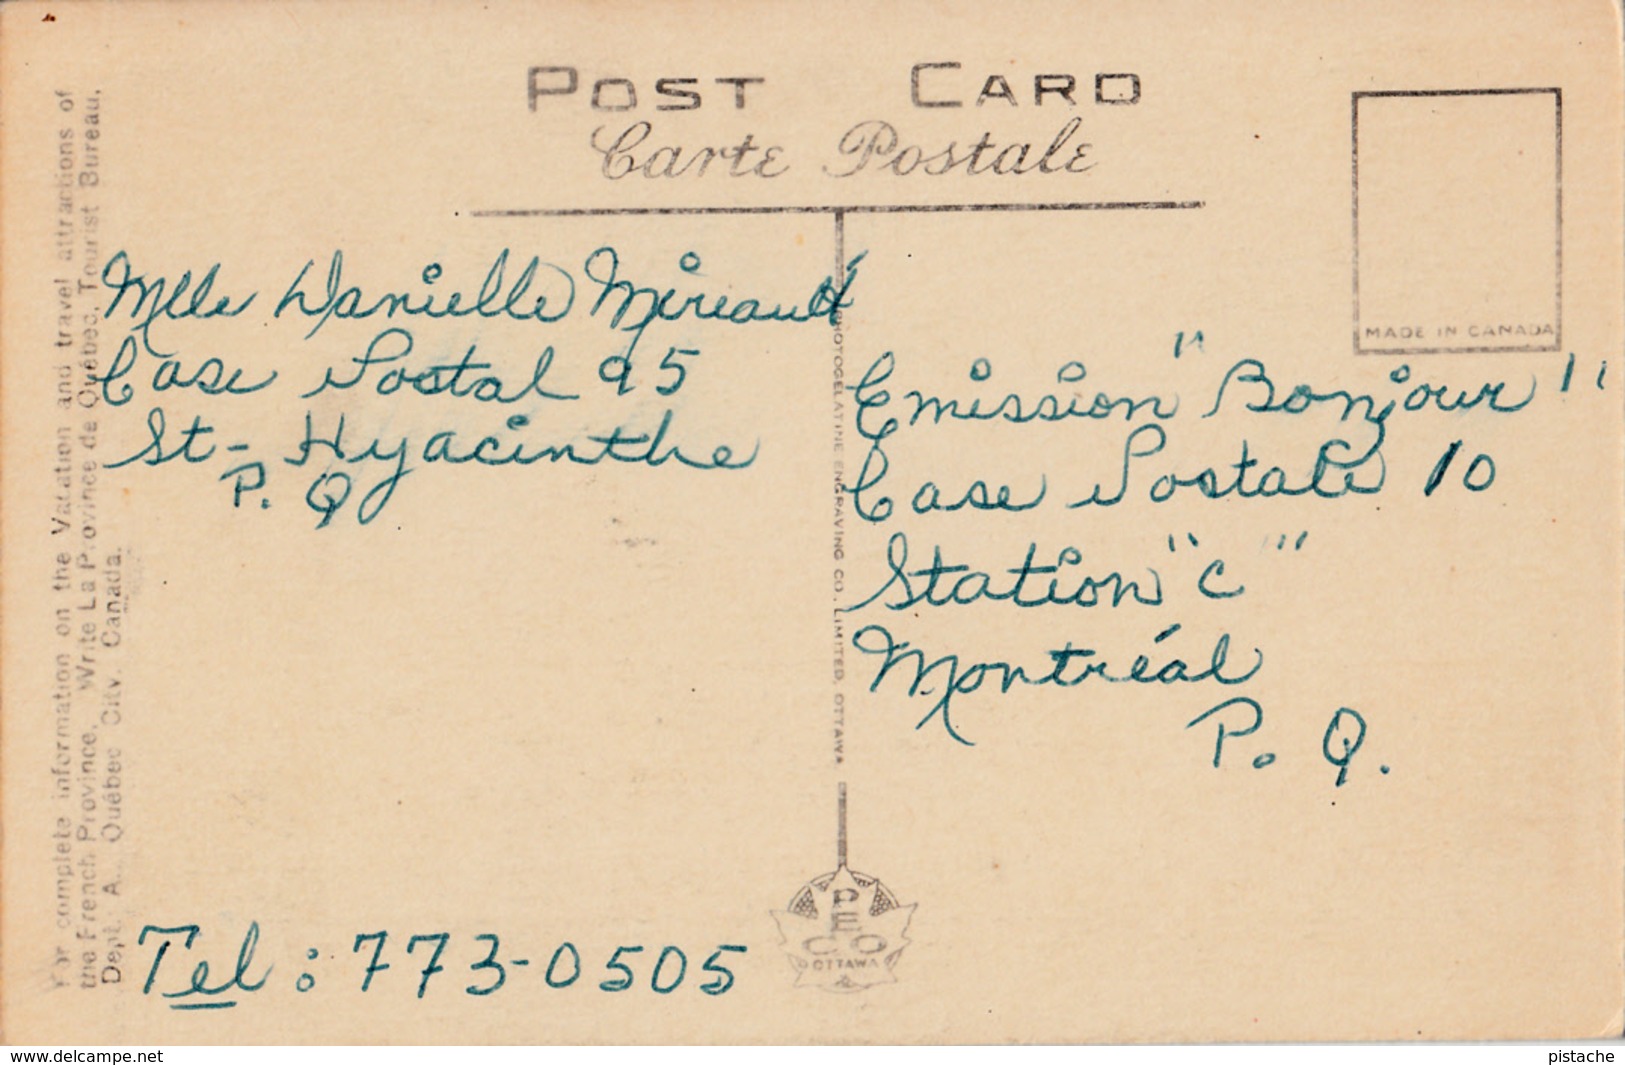 POST CARD
Carte Postale
MADE IN CANADA
For complete information on the Vacation and travel attractions of
the French Province, Write La Province de Québec, Tourist Bureau,
Dept. A., Québec City, Canada.
Mlle Danielle Mireault
Case Postal 95
St-Hyacinthe
P. Q
Tel : 773-0505
PHOTOGELATINE ENGRAVING CO. LIMITED, OTTAWA
Emission "Bonjour"
Case Postale 10
Station "C"
Montréal
P. Q.
PECO
OTTAWA
www.delcampe.net
pistache